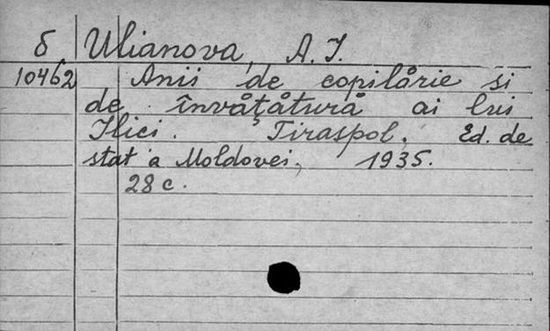 б Ulianova, A. I.
10462 Anii de copilårie si
de învåţåtură ai lui
Ilici. Tiraspol. Ed. de
stat a Moldovei, 1935.
28 c.